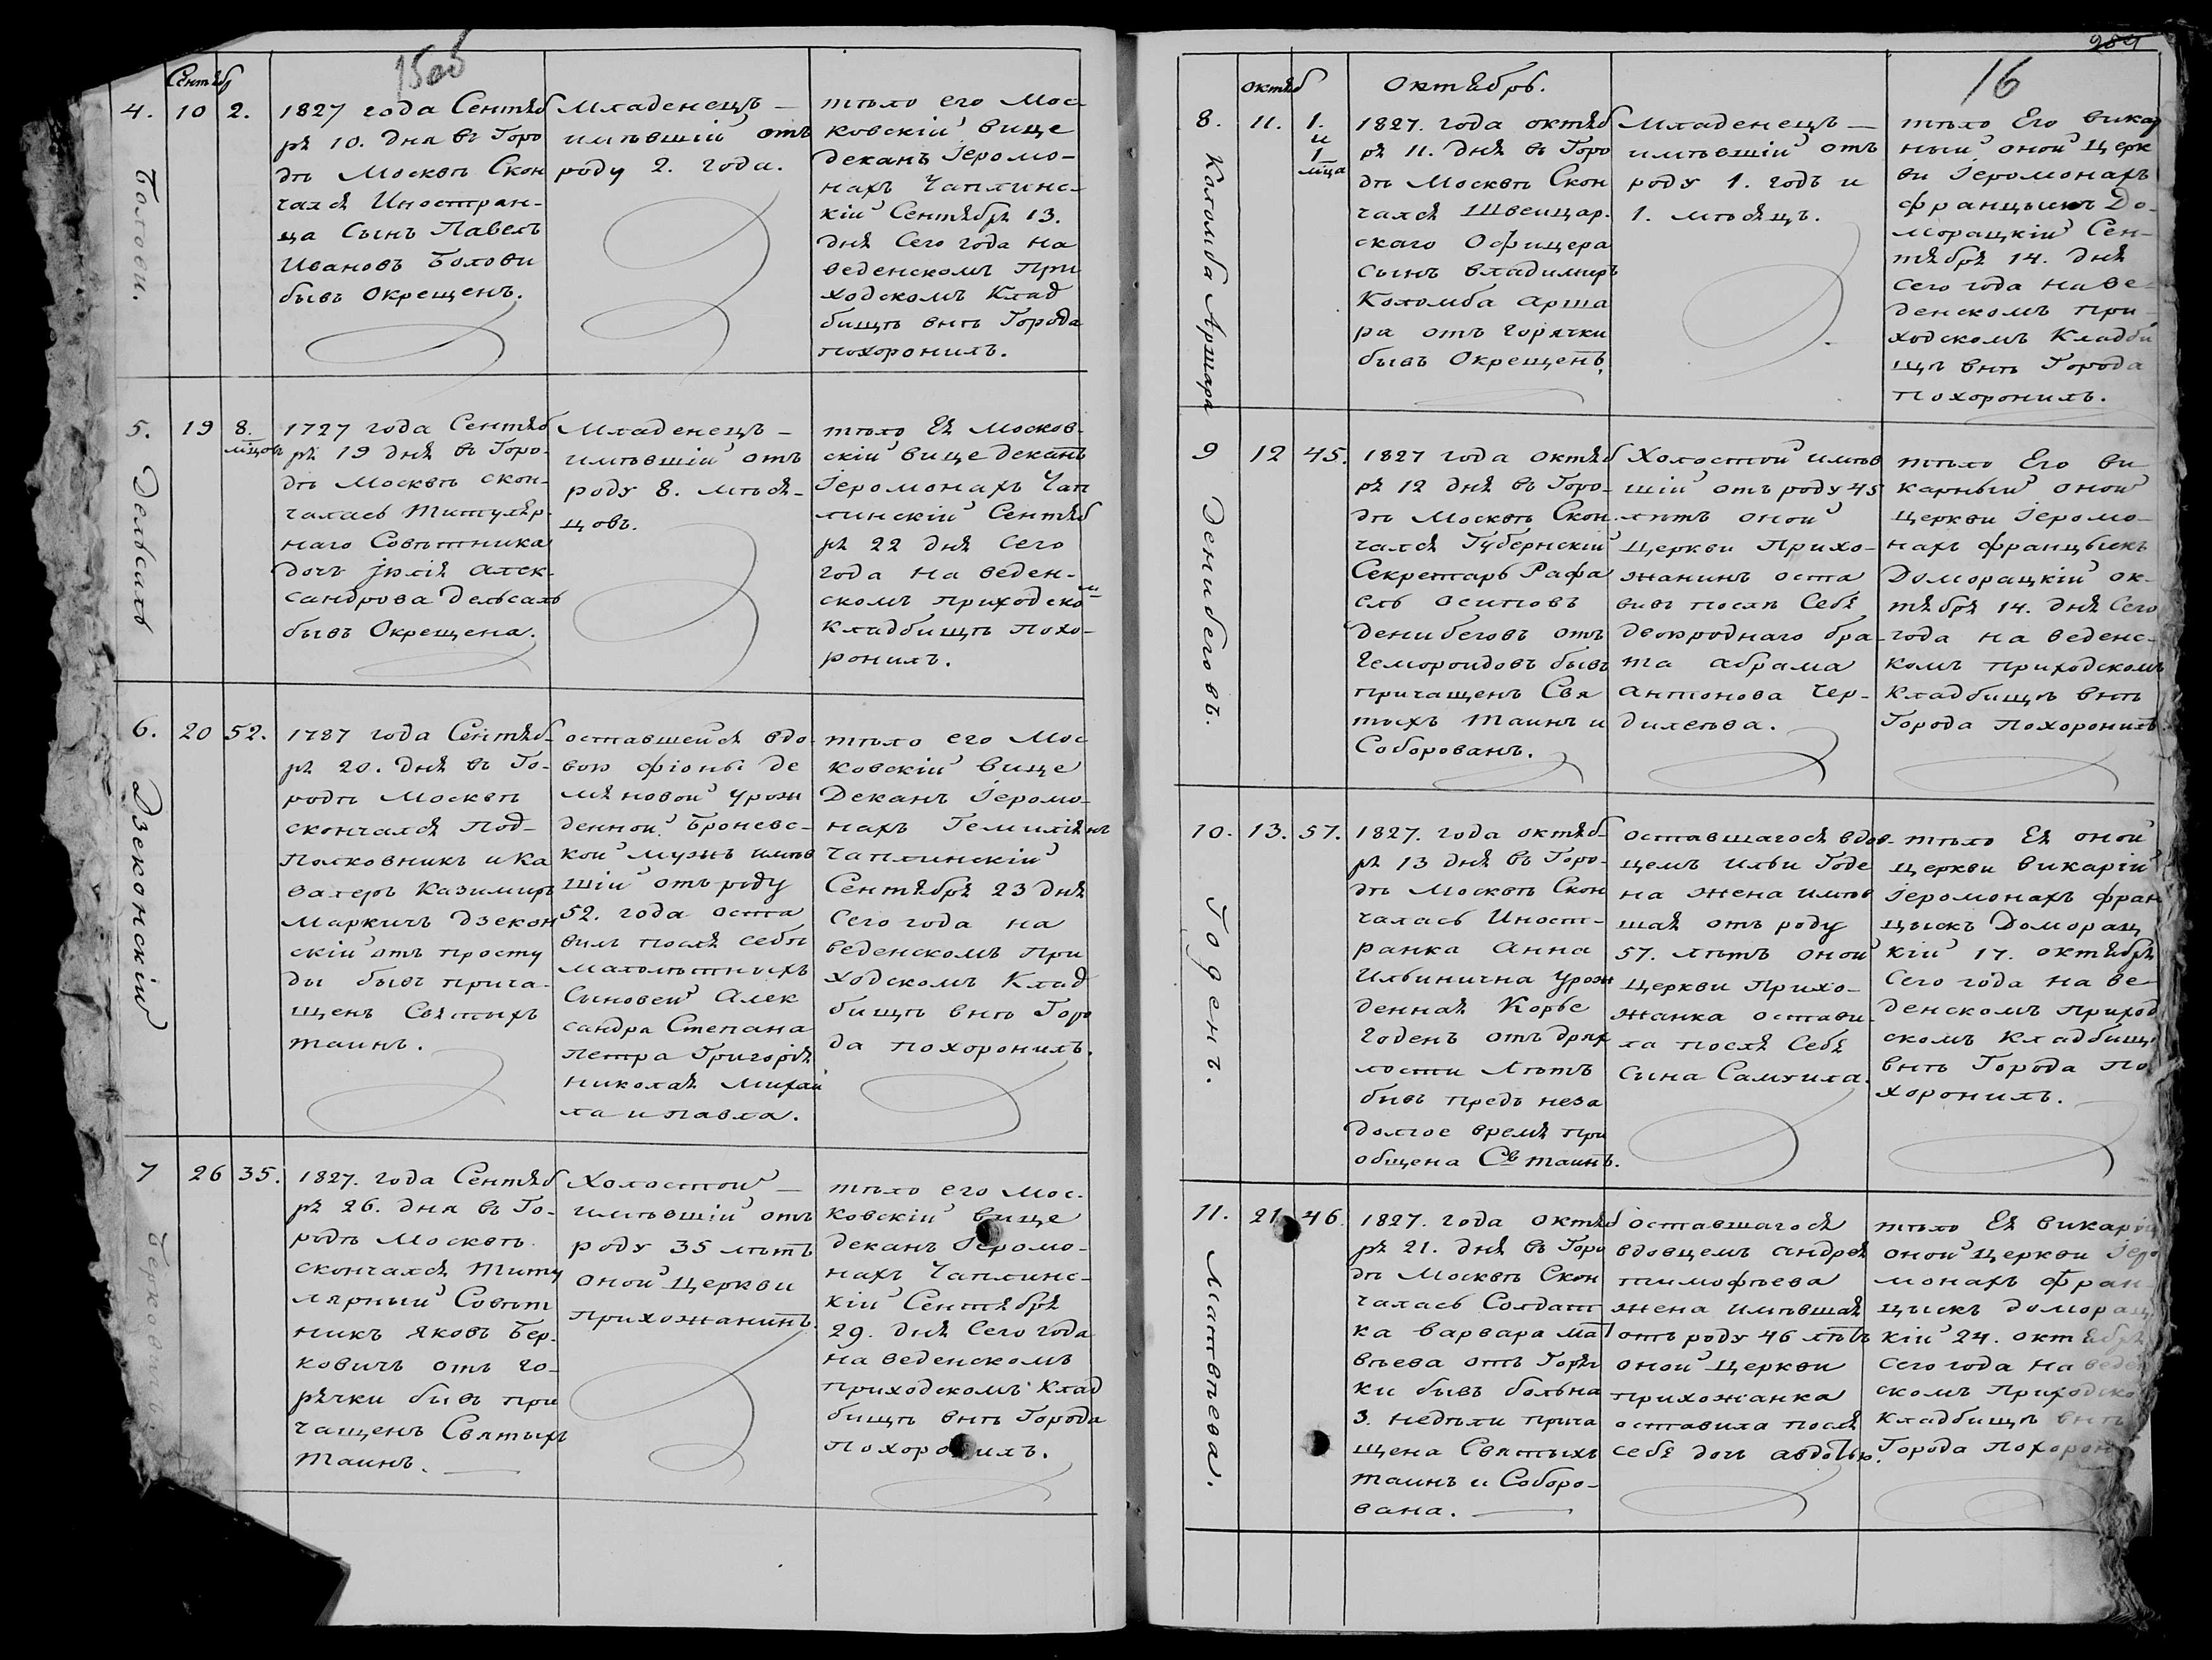 15об
Сентяб
4.
10
2.
Болови.
1827 года Сентяб
ря 10. дня въ Горо
дѣ Москвѣ Скон
чался Иностран-
ца Сынъ Павелъ
Ивановъ Болови
бывъ Окрещенъ.
Младенецъ —
имѣвшій отъ
роду 2. года.
тѣло его Мос-
ковскій вице
деканъ Іеромо-
нахъ Чаплинс-
кій Сентября 13.
дня Сего года на
веденскомъ При
ходскомъ Клад
бищѣ внѣ Города
похоронилъ.
5.
19
8.
мцовъ
Дельсаль
1727 года Сентяб
ря 19 дня въ Горо-
дѣ Москвѣ скон-
чалась Титуляр-
наго Совѣтника
дочь Јюлія алек-
сандрова дельсаль
бывъ Окрещена.
Младенецъ —
имѣвшій отъ
роду 8. мѣся-
цовъ.
тѣло Ея Москов-
скій вице деканъ
Іеромонахъ Чап
линскій Сентяб
ря 22 дня Сего
года на веден-
скомъ приходско
м
Кладбищѣ похо-
ронилъ.
6.
20
52.
Дзеконскій
1787 года Сентяб-
ря 20. дня въ Го-
родѣ Москвѣ
скончался Под-
Полковникъ и Ка
валеръ Казимиръ
Маркичъ Дзекон
скій отъ просту
ды бывъ прича-
щенъ Святыхъ
таинъ.
оставшейся вдо-
вою фіоны де
мяновой урож
денной Броневс-
кой мужъ имѣв
шій отъ роду
52. года оста
вилъ послѣ себя
малолѣтныхъ
Сыновей Алек
сандра Степана
Петра Григорія
николая Михай
ла и павла.
тѣло его Мос
ковскій вице
Деканъ Іеромо-
нахъ Гемиліянъ
Чаплинскій
Сентября 23 дня
Сего года на
веденскомъ При
ходскомъ Клад
бищѣ внѣ Горо
да похоронилъ.
7
26
35.
Берковичъ.
1827. года Сентяб
ря 26. дня въ Го-
родѣ Москвѣ
скончался Титу
лярный Совѣт
никъ яковъ Бер-
ковичъ отъ го-
рячки бывъ при
чащенъ Святыхъ
Таинъ. —
Холостой —
имѣвшій отъ
роду 35 лѣтъ
оной Церкви
прихожанинъ.
тѣло его Мос-
ковскій вице
деканъ Іеромо-
нахъ Чаплинс-
кій Сентября
29. дня Сего года
на веденскомъ
приходскомъ Клад
бищѣ внѣ Города
Похоронилъ.
289
16
октяб
Октябрь.
8.
11.
1.
и
1
мца
Коломба Аршара
1827. года октяб
ря 11. дня въ Горо
дѣ Москвѣ Скон
чался Швейцар-
скаго Офицера
сынъ владимиръ
Коломба арша
ра отъ горячки
бывъ Окрещенъ.
Младенецъ —
имѣвшій отъ
роду 1. годъ и
1. мѣсяцъ.
тѣло Его викар
ный оной Церк
ви Іеромонахъ
францыскъ До-
морацкій Сен-
тября 14. дня
Сего года на ве-
денскомъ при-
ходскомъ Кладби
щѣ внѣ Города
Похоронилъ.
9
12
45.
Денибеговъ.
1827 года октяб
ря 12 дня въ Горо-
дѣ Москвѣ Скон-
чался Губернскій
Секретарь Рафа
елъ осиповъ
денибеговъ отъ
гемороидовъ бывъ
причащенъ Свя
тыхъ Таинъ и
Соборованъ.
Холостой имѣв
шій отъ роду 45
лѣтъ оной
Церкви Прихо-
жанинъ оста
вивъ послѣ Себя
двоюроднаго бра-
та абрама
антонова Чер-
дилѣева.
тѣло Его ви
карный оной
Церкви Іеромо-
нахъ францыскъ
Доморацкій ок-
тября 14. дня Сего
года на веденс-
комъ приходскомъ
Кладбищѣ внѣ
Города Похоронилъ.
10.
13.
57.
Годенъ.
1827. года октяб-
ря 13 дня въ Горо-
дѣ Москвѣ Скон
чалась Иност-
ранка анна
Ильинична урож
денная Корье
Годенъ отъ дрях
лости лѣтъ
бывъ предъ неза
долгое время при
общена Св таинъ.
оставшагося вдов-
цемъ ильи Годе
на жена имѣв
шая отъ роду
57. лѣтъ оной
Церкви Прихо-
жанка остави-
ла послѣ Себя
сына Самуила.
тѣло Ея оной
Церкви викарій
Іеромонахъ фран
цыскъ Доморац
кій 17. октября
Сего года на ве-
денскомъ приход
скомъ Кладбищѣ
внѣ Города По
хоронилъ.
11.
21
46.
Матвѣева.
1827. года октяб
ря 21. дня въ Горо
дѣ Москвѣ Скон
чалась Солдат
ка варвара мат
вѣева отъ Горяч
ки бывъ больна
3. недѣли прича
щена Святыхъ
таинъ и Соборо-
вана. —
оставшагося
вдовцемъ андрея
тимофѣева
жена имѣвшая
отъ роду 46 лѣтъ
оной Церкви
прихожанка
оставила послѣ
себя дочь авдотью.
тѣло Ея викарій
оной Церкви Іеро
монахъ фран-
цыскъ доморац
кій 24. октября
Сего года на веден
скомъ Приходско
Кладбищѣ внѣ
Города Похорон